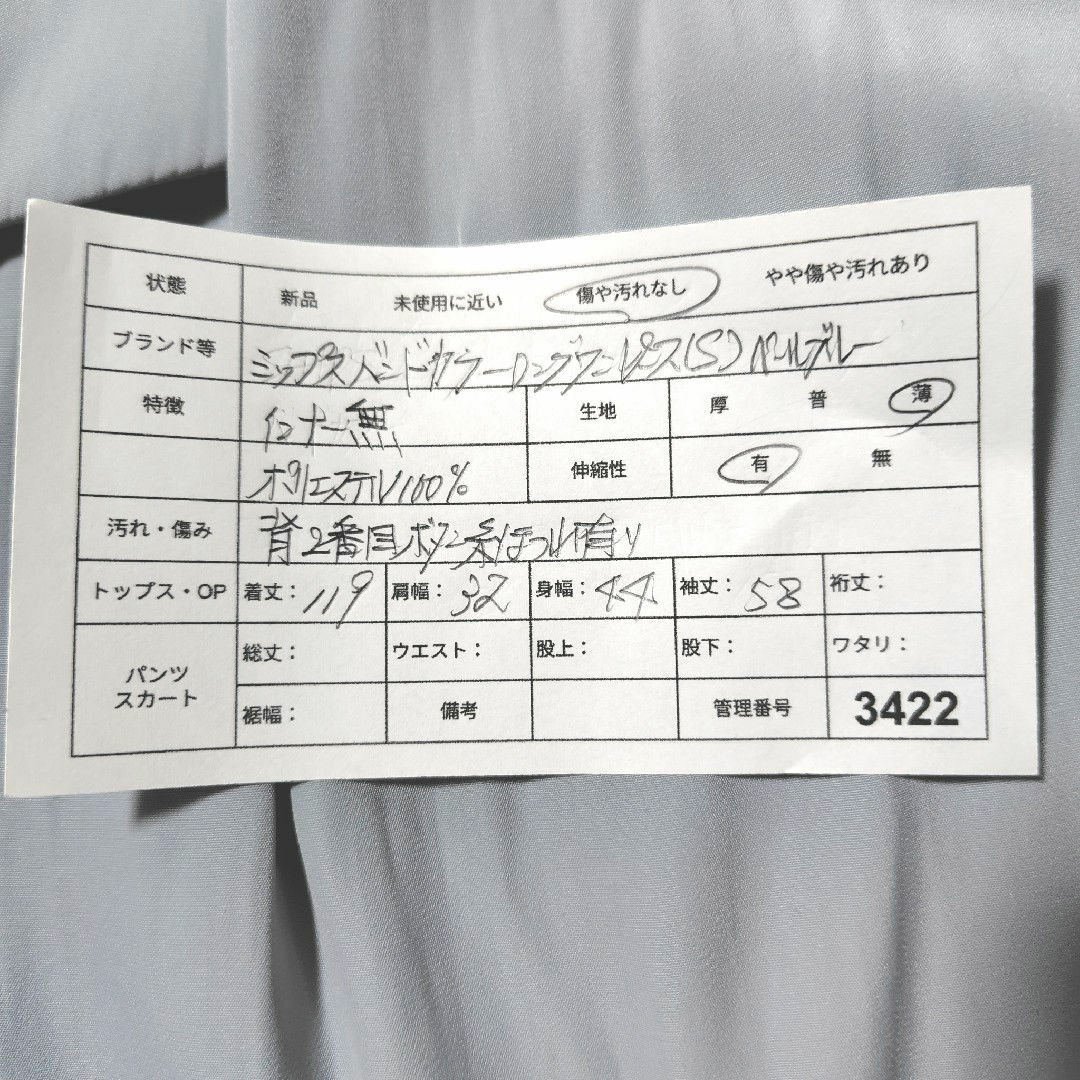 状態 新品 未使用に近い 傷や汚れなし やや傷や汚れあり
ブランド等 ミップス バンドカラーロングワンピース(S) ペールブルー
特徴 インナー無 生地 厚 普 薄
ポリエステル100% 伸縮性 有 無
汚れ・傷み 背2番目ボタン糸ほつれ有り
トップス・OP 着丈：119 肩幅：32 身幅：44 袖丈：58 裄丈：
パンツ スカート 総丈： ウエスト： 股上： 股下： ワタリ：
裾幅： 備考 管理番号 3422